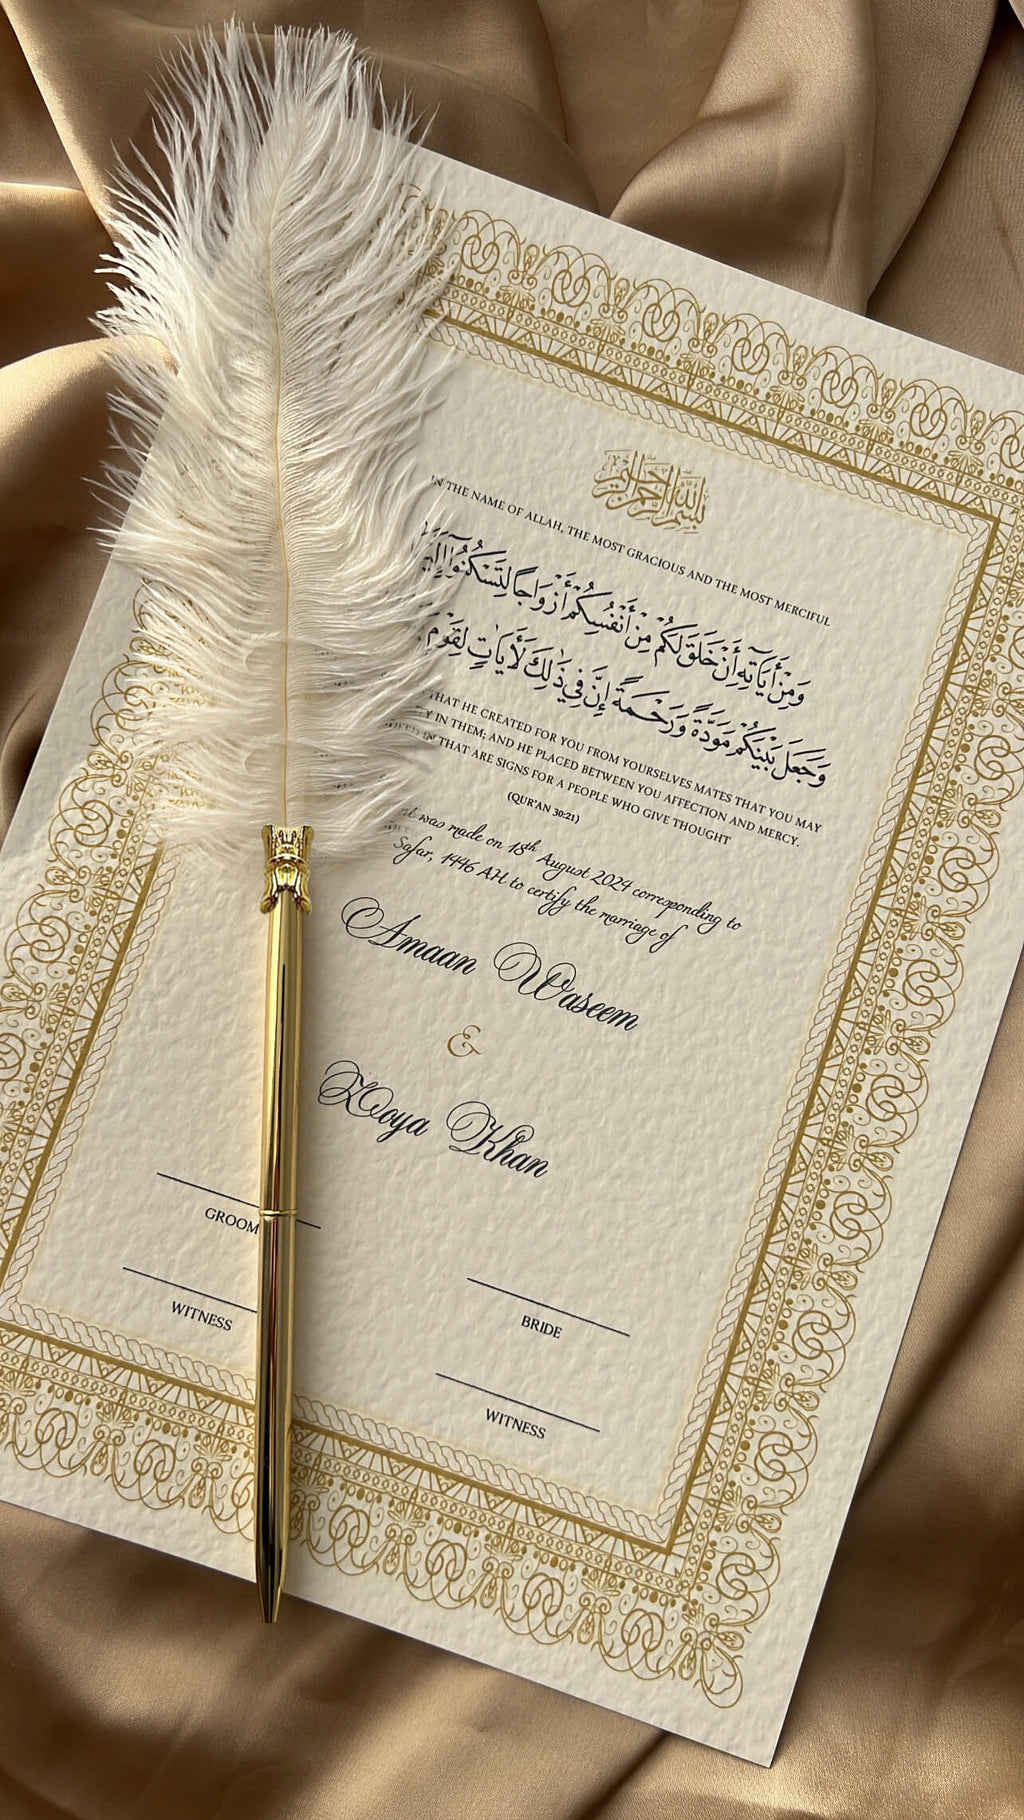 بسم الله الرحمن الرحيم
IN THE NAME OF ALLAH, THE MOST GRACIOUS AND THE MOST MERCIFUL
وَمِنْ أَيَاتِهِ أَنْ خَلَقَ لَكُمْ مِنْ أَنْفُسِكُمْ أَزْوَاجًا لِتَسْكُنُوا
وَجَعَلَ بَيْنَكُمْ مَوَدَّةً وَرَحْمَةً إِنَّ فِي ذَٰلِكَ لَأَيَاتٍ لِقَوْمٍ
THAT HE CREATED FOR YOU FROM YOURSELVES MATES THAT YOU MAY
IN THEM; AND HE PLACED BETWEEN YOU AFFECTION AND MERCY.
IN THAT ARE SIGNS FOR A PEOPLE WHO GIVE THOUGHT
(QUR'AN 30:21)
was made on 18th August 2024 corresponding to
Safar, 1446 AH to certify the marriage of
Amaan Waseem
&
Zoya Khan
GROOM
BRIDE
WITNESS
WITNESS